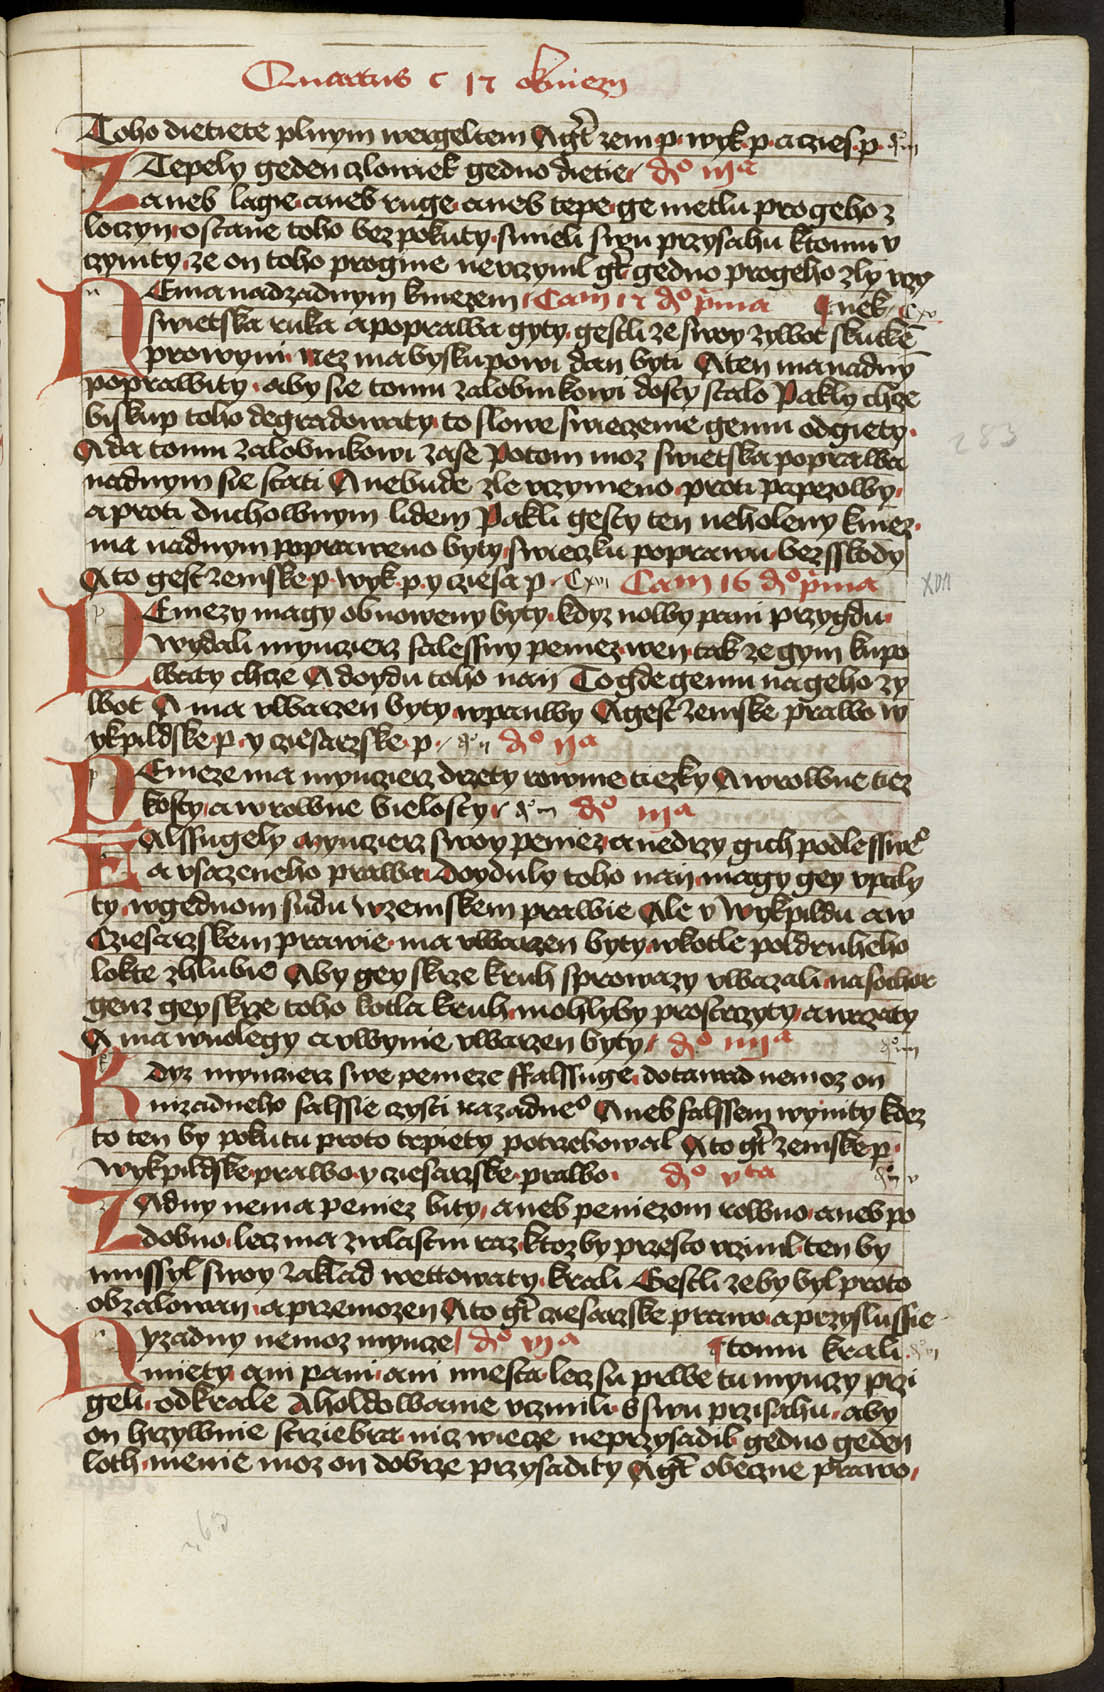 Quartus c 17 okniezy
Toho dietiete plnym wergeltem Agt zem p wyk p a czies p
ZTepely geden czlowiek gedno dietie do iija
aneb lagie aneb ruge aneb tepe ge metlu pro geho z
loczyn ostane toho bez pokuty smieli swu przysahu k tomu v
czynity ze on toho progine nevczynil gt gedno pro geho zly vczy
NEma nad zadnym kniezem Cam 17 do prima nek
swietska ruka a poprawa gyty gestli ze swoy zywot skutke
prowyni nez ma byskupowi dan byti A ten ma nad ny
poprawity aby sie tomu zalobnikowi dosty stalo Pakly chze
biskup toho degradowaty to slowe swieczenie gemu odgiety
A da tomu zalobnikowi zase Potom moz swietska poprawa
nad nym sie stati A nebude zle vczyneno proti papezowy
a proti duchownym lidem Pakli gesty ten neholeny kniez
ma nad nym popraweno byty swieczku poprawu bez sskody
A to gest zemske p wyk p y ciesa p Cxvi Cam 16 do prima
PEniezy magy obnoweny byty kdyz nowy pan przygdu
wydali mynczierz falessny peniez wen tak ze gym kupo
waty chze A doydu toho nan Togde gemu na geho zy
wot A ma vwarzen byty w panwy A gest zemske prawo w
ykpildske p y ciesarzske p do ija
PEnieze ma mynczierz drzety rownie tiezky A wrowne tiez
kosty a wrowne bielosty do iija
FAlssugely mynczierz swoy peniez a nedrzy gich podle sswe
a vsazeneho prawa Doyduly toho nan magy gey vpaly
ty w gednom sudu w zemskem prawie Ale v wykpildu a w
Cziesarzskem prawie ma vwarzen byty w kotle poldruheho
lokte zhlubie Aby gey skrze kruh sprowazy vwazali na sochor
genz gey skrze toho kotla kruh mohlyby prostrczyty a wrzaty
A ma w nolegy a v wynie vwarzen byty do iiija
KDyz mynczierz swe penieze ffalssuge dotawad nemoz on
nizadneho falssie czysti na zadneo Aneb falssem wyinity kdez
to ten by pokutu proto trpiety potrzebowal A to gt zemske p
wykpildske prawo y ciesarzske prawo do vta
ZAdny nema peniez bity aneb peniezom rowno aneb po
dobno lecz ma zwlastni raz ktoz by przesto vczinil ten by
mussyl swoy zaklad wettowaty krali Gestli ze by byl proto
obzalowan a przemozen A to gt ciesarzske prawo a przyslussie
Nyzadny nemoz mynce do vja tomu krali
miety ani pani ani miesta lecz su prwe tu mynczy przi
geli od krale A holdowanie vczinili b swu przisahu aby
on hrzywnie strziebra nicz wiecze neprzysadil gedno geden
loth menie moz on dobrze przysadity A gt obeczne prawo